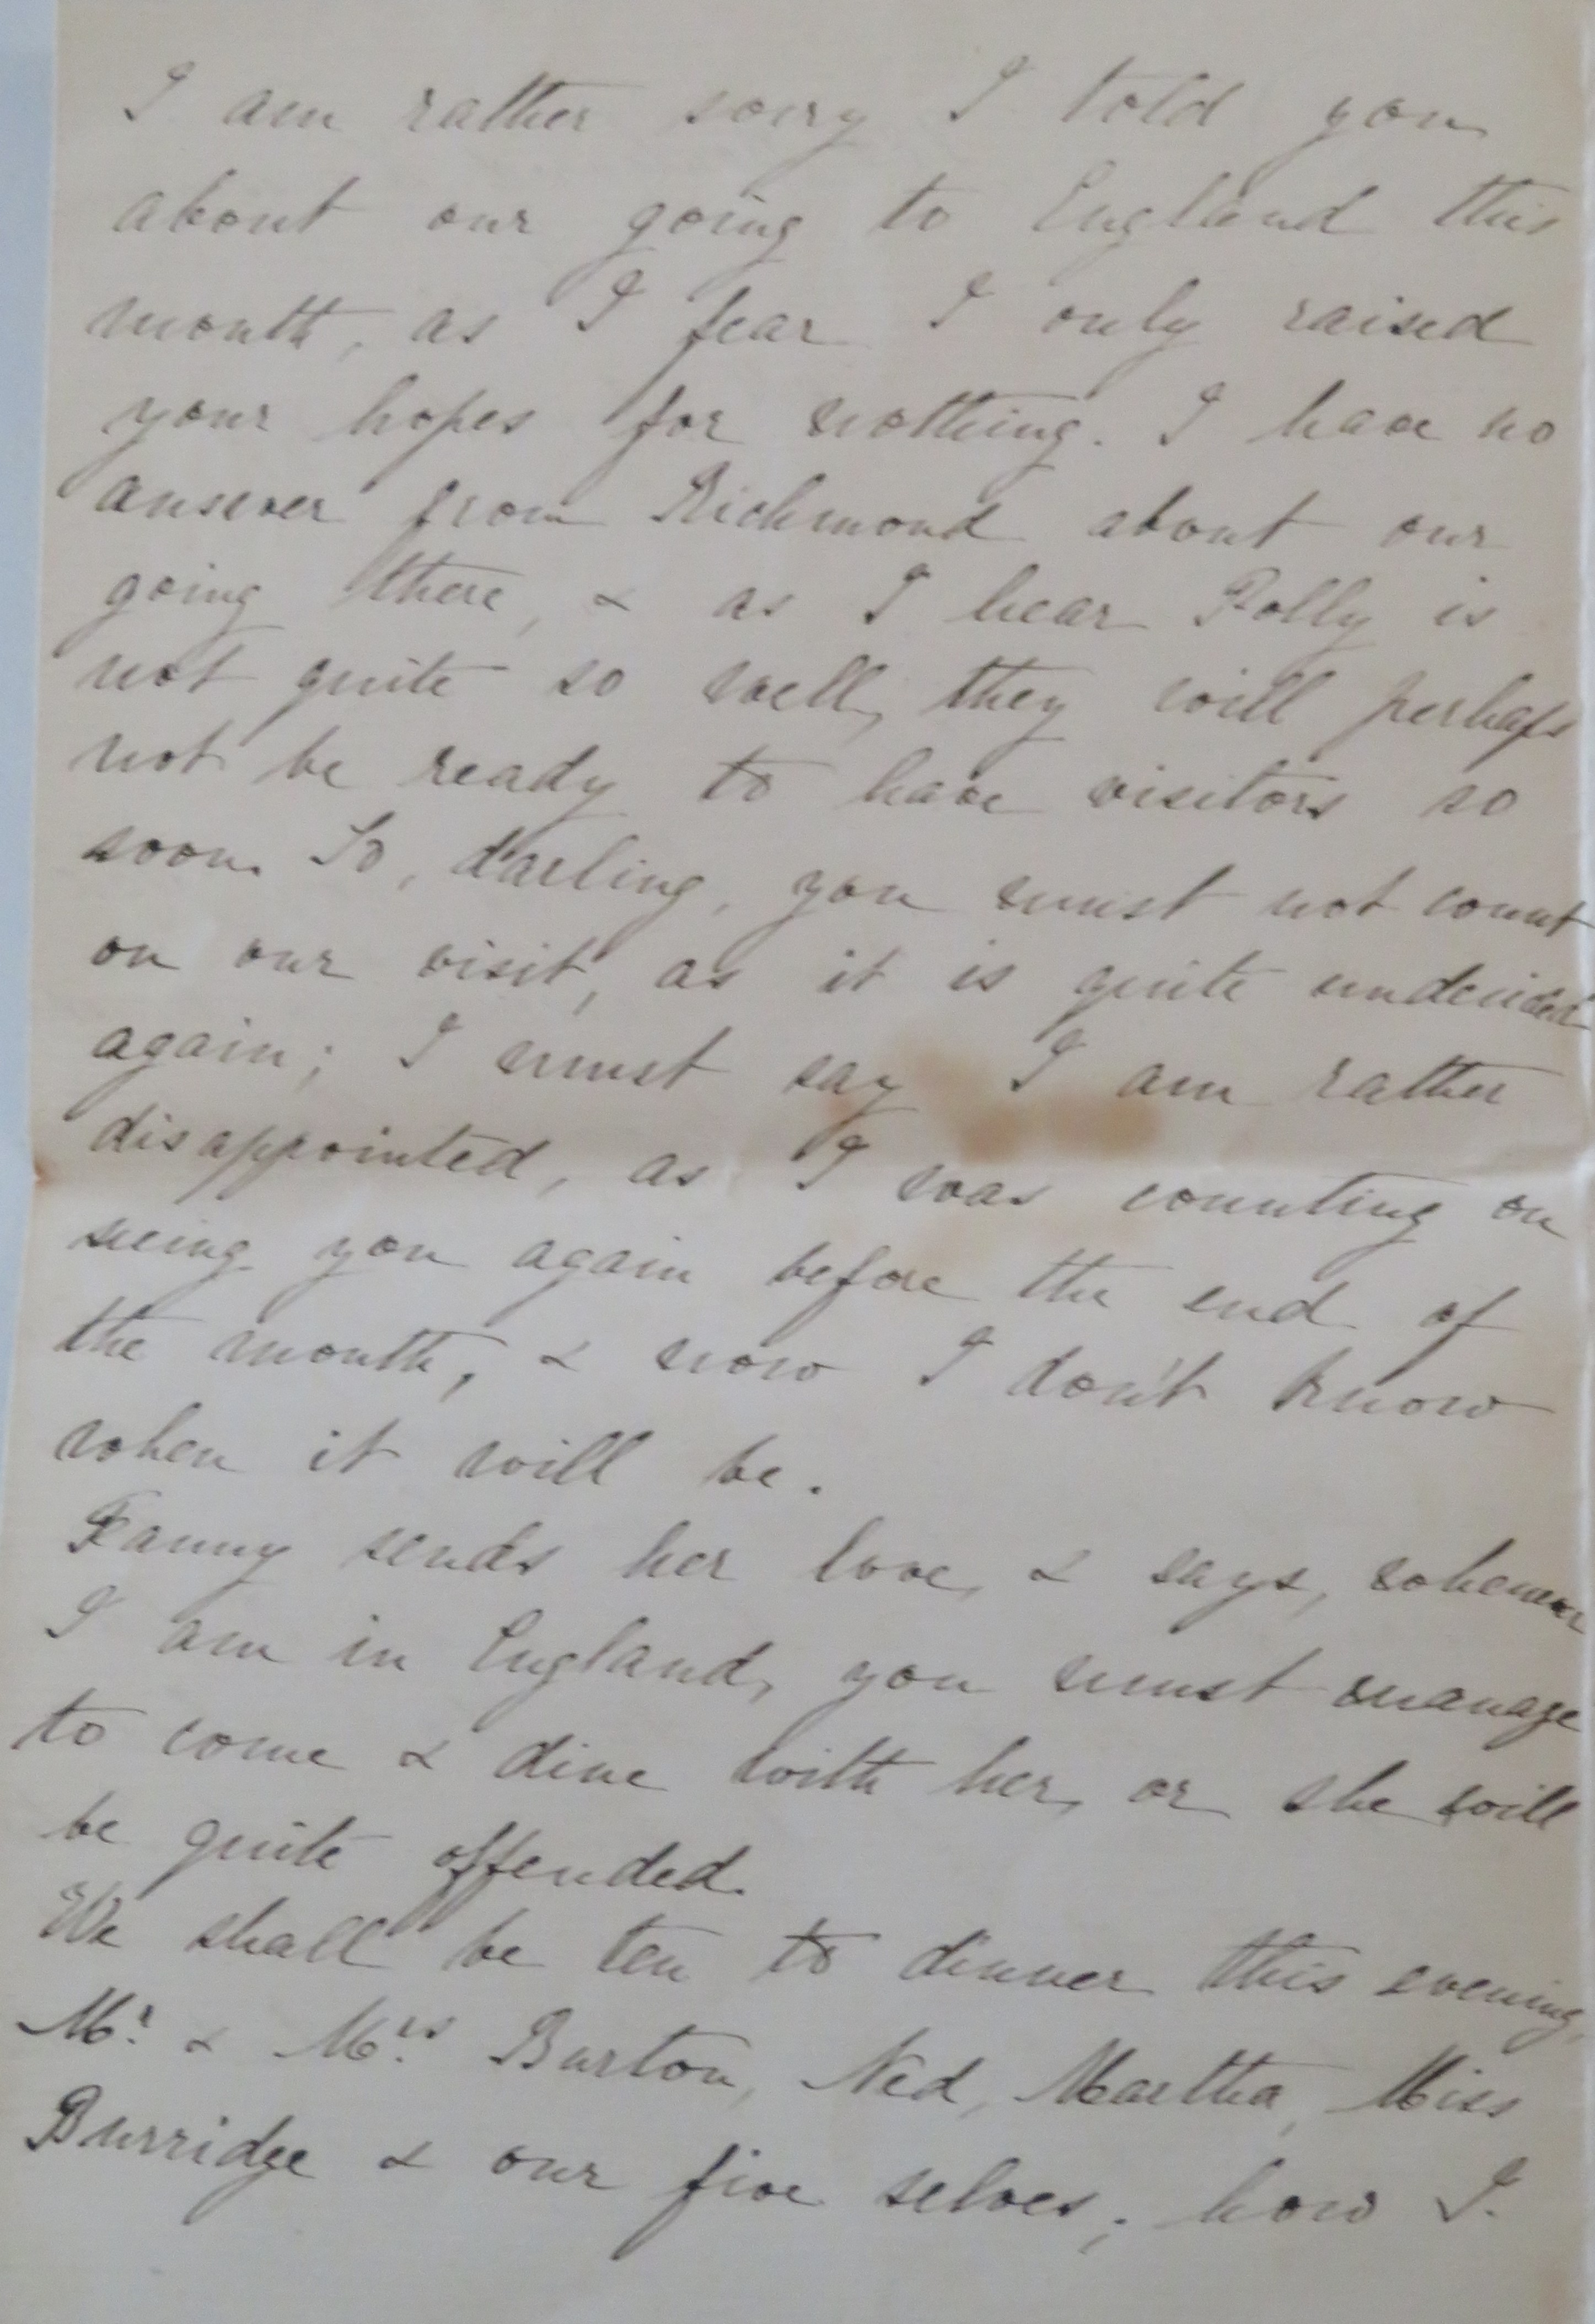 I am rather sorry I told you
about our going to England this
month, as I fear I only raised
your hopes for nothing. I have no
answer from Richmond about our
going there, & as I hear Polly is
not quite so well, they will perhaps
not be ready to have visitors so
soon. So, darling, you must not count
on our visit, as it is quite undecided
again; I must say I am rather
disappointed, as I was counting on
seeing you again before the end of
the month, & now I don't know
when it will be.
Fanny sends her love, & says, whenever
I am in England, you must manage
to come & dine with her, or she will
be quite offended.
We shall be ten to dinner this evening,
Mr. & Mrs. Burton, Ned, Martha, Miss
Burridge & our five selves; how I